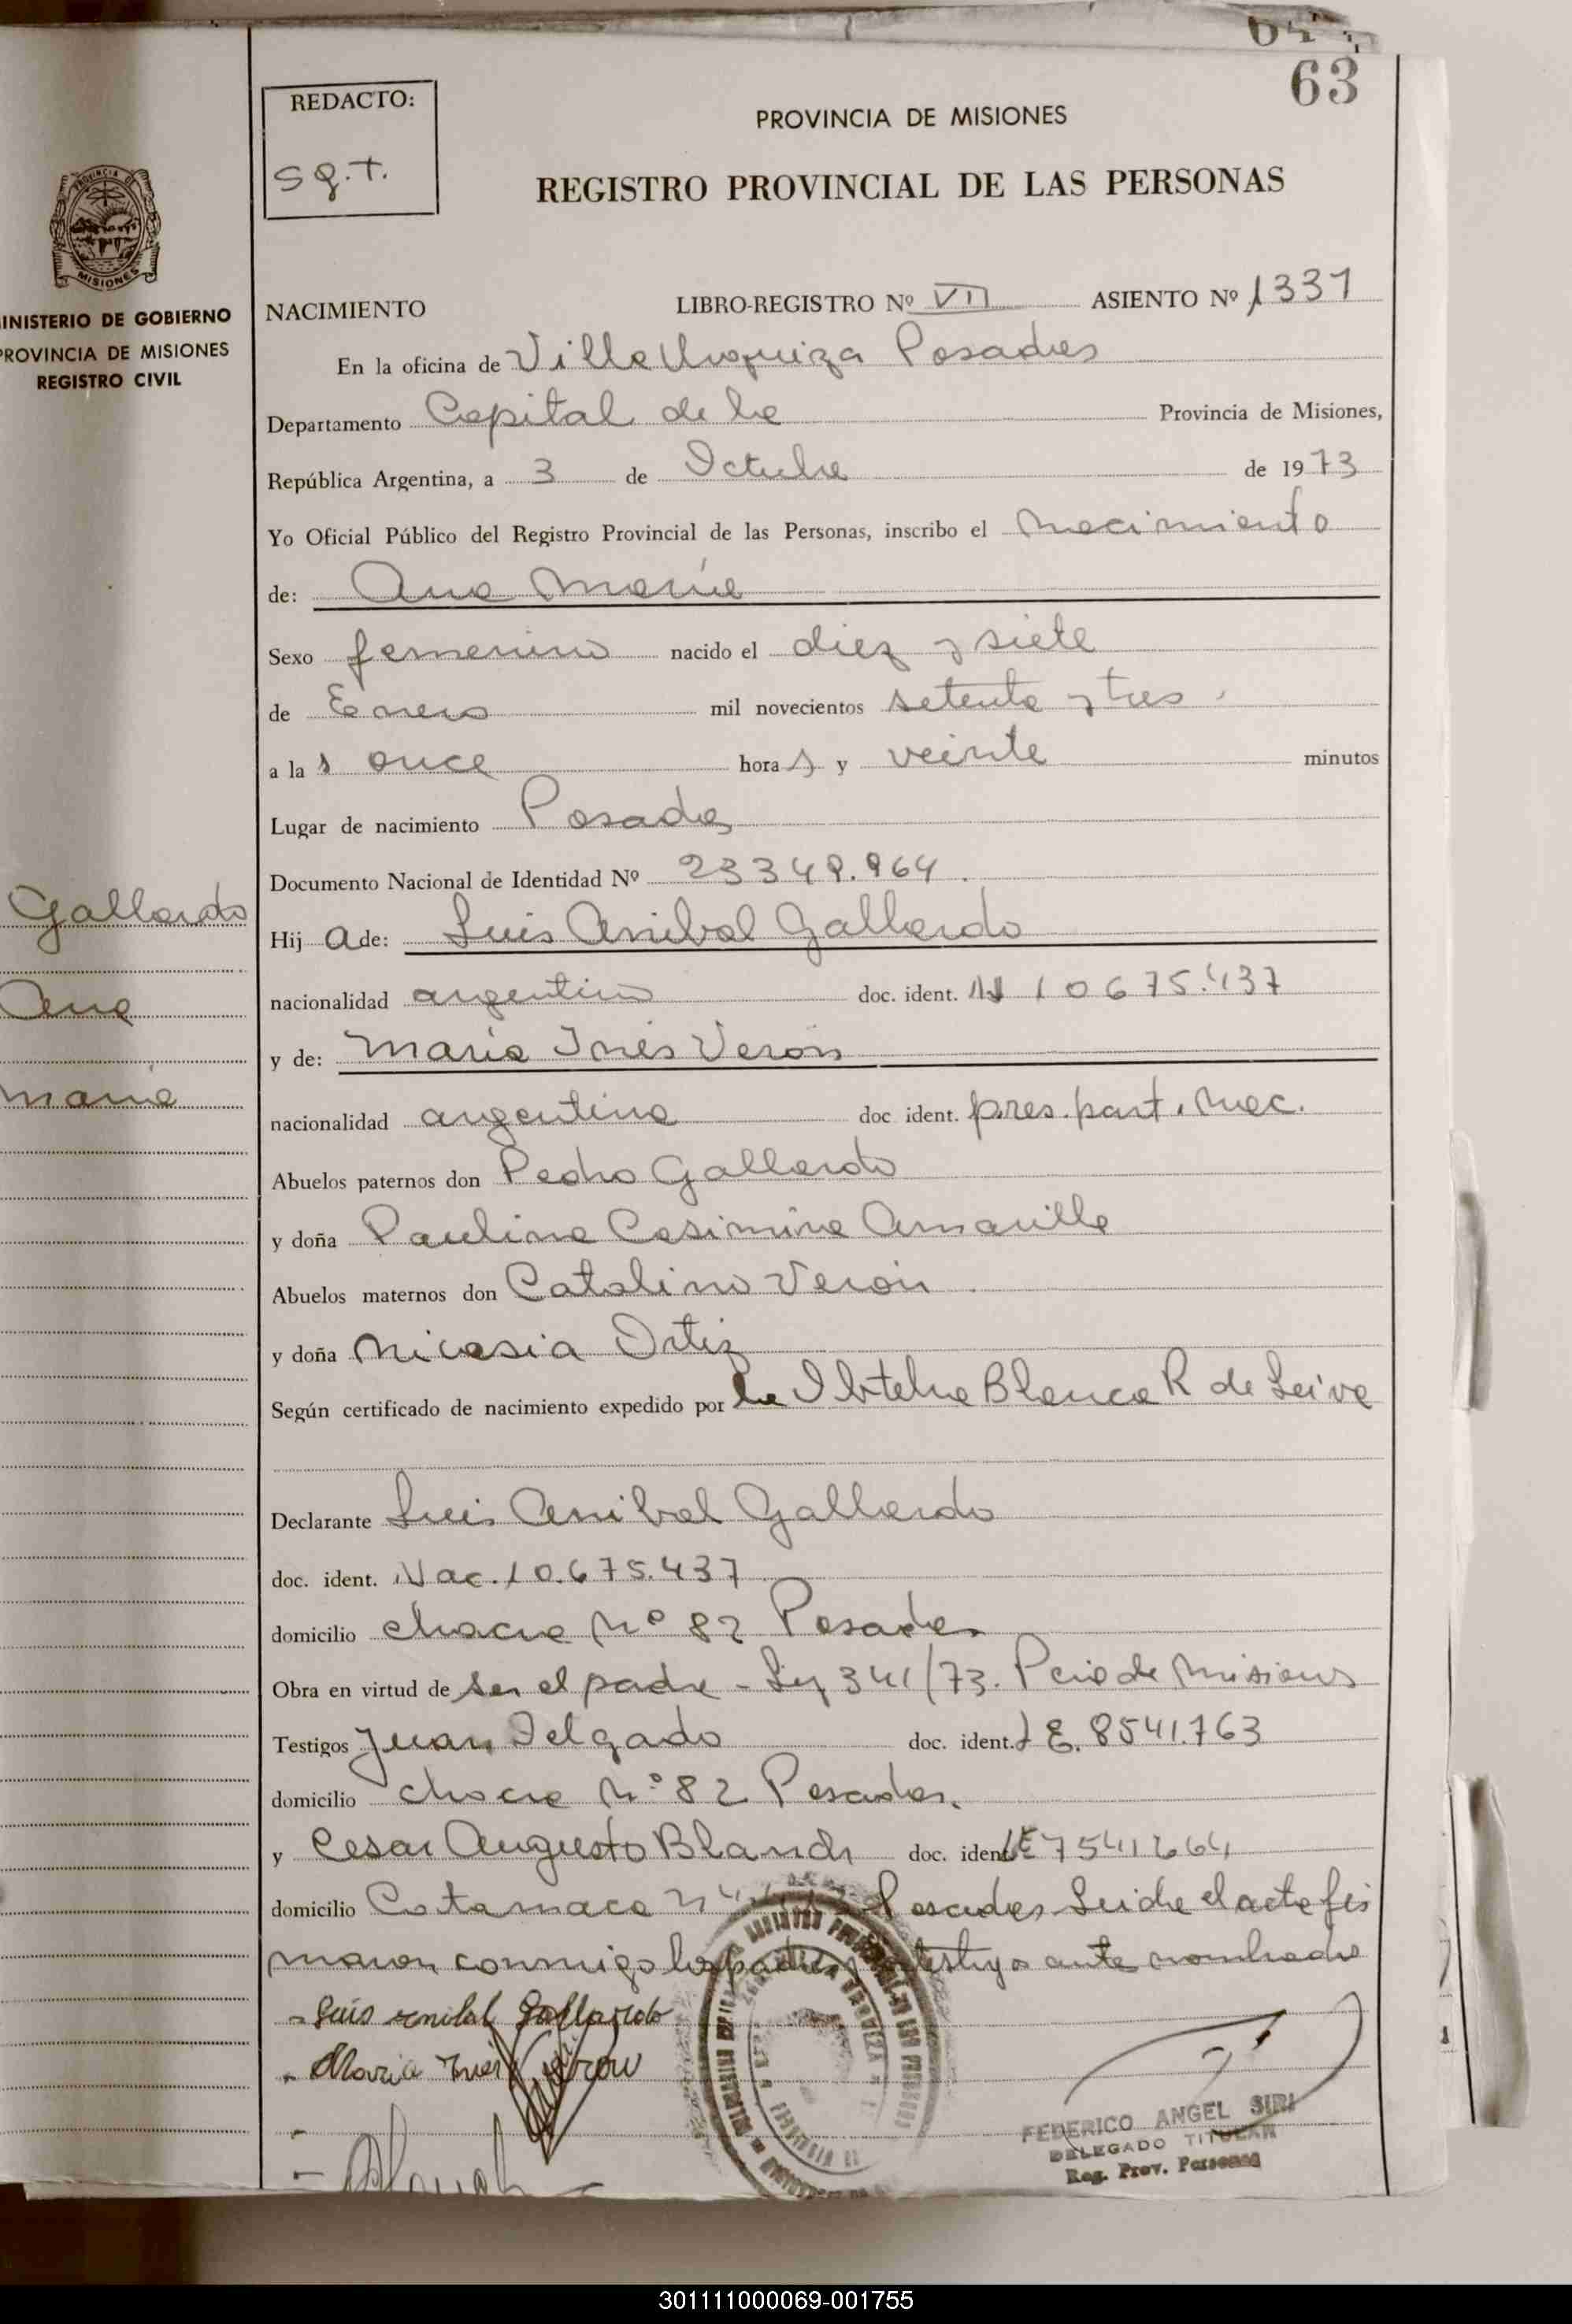 63
REDACTO:
PROVINCIA DE MISIONES
REGISTRO PROVINCIAL DE LAS PERSONAS
MISIONES
MINISTERIO DE GOBIERNO
PROVINCIA DE MISIONES
REGISTRO CIVIL
NACIMIENTO LIBRO-REGISTRO Nº VII ASIENTO Nº 1331
En la oficina de Villa Urquiza Posadas
Departamento Capital de la Provincia de Misiones,
República Argentina, a 3 de Octubre de 1973
Yo Oficial Público del Registro Provincial de las Personas, inscribo el Nacimiento
de: Ana María
Sexo femenino nacido el diez y siete
de Enero mil novecientos setenta y tres
a las once horas y veinte minutos
Lugar de nacimiento Posadas
Documento Nacional de Identidad Nº 23349.964
Gallardo
Hija de: Luis Anibal Gallardo
nacionalidad argentino doc. ident. 10675.437
Ana
y de: María Inés Verón
María
nacionalidad argentina doc ident. pres. part. Nac.
Abuelos paternos don Pedro Gallardo
y doña Paulina Casimira Amarilla
Abuelos maternos don Catalino Verón
y doña Nicasia Ortiz
Según certificado de nacimiento expedido por la Obstetra Blanca R de Leiva
Declarante Luis Anibal Gallardo
doc. ident. Nac. 10.675.437
domicilio chacra Nº 82 Posadas
Obra en virtud de ser el padre - Ley 341/73. Pcia de Misiones
Testigos Juan Delgado doc. ident. L E. 8541.763
domicilio chacra Nº 82 Posadas.
y Cesar Augusto doc. ident LE 7541264
domicilio Catamarca Posadas Leida el acta fir
maron conmigo los padres testigos ante nombrados
- Luis anibal Gallardo
- Maria Ines Veron
FEDERICO ANGEL SIRI
DELEGADO TITULAR
Reg. Prov. Personas
301111000069-001755